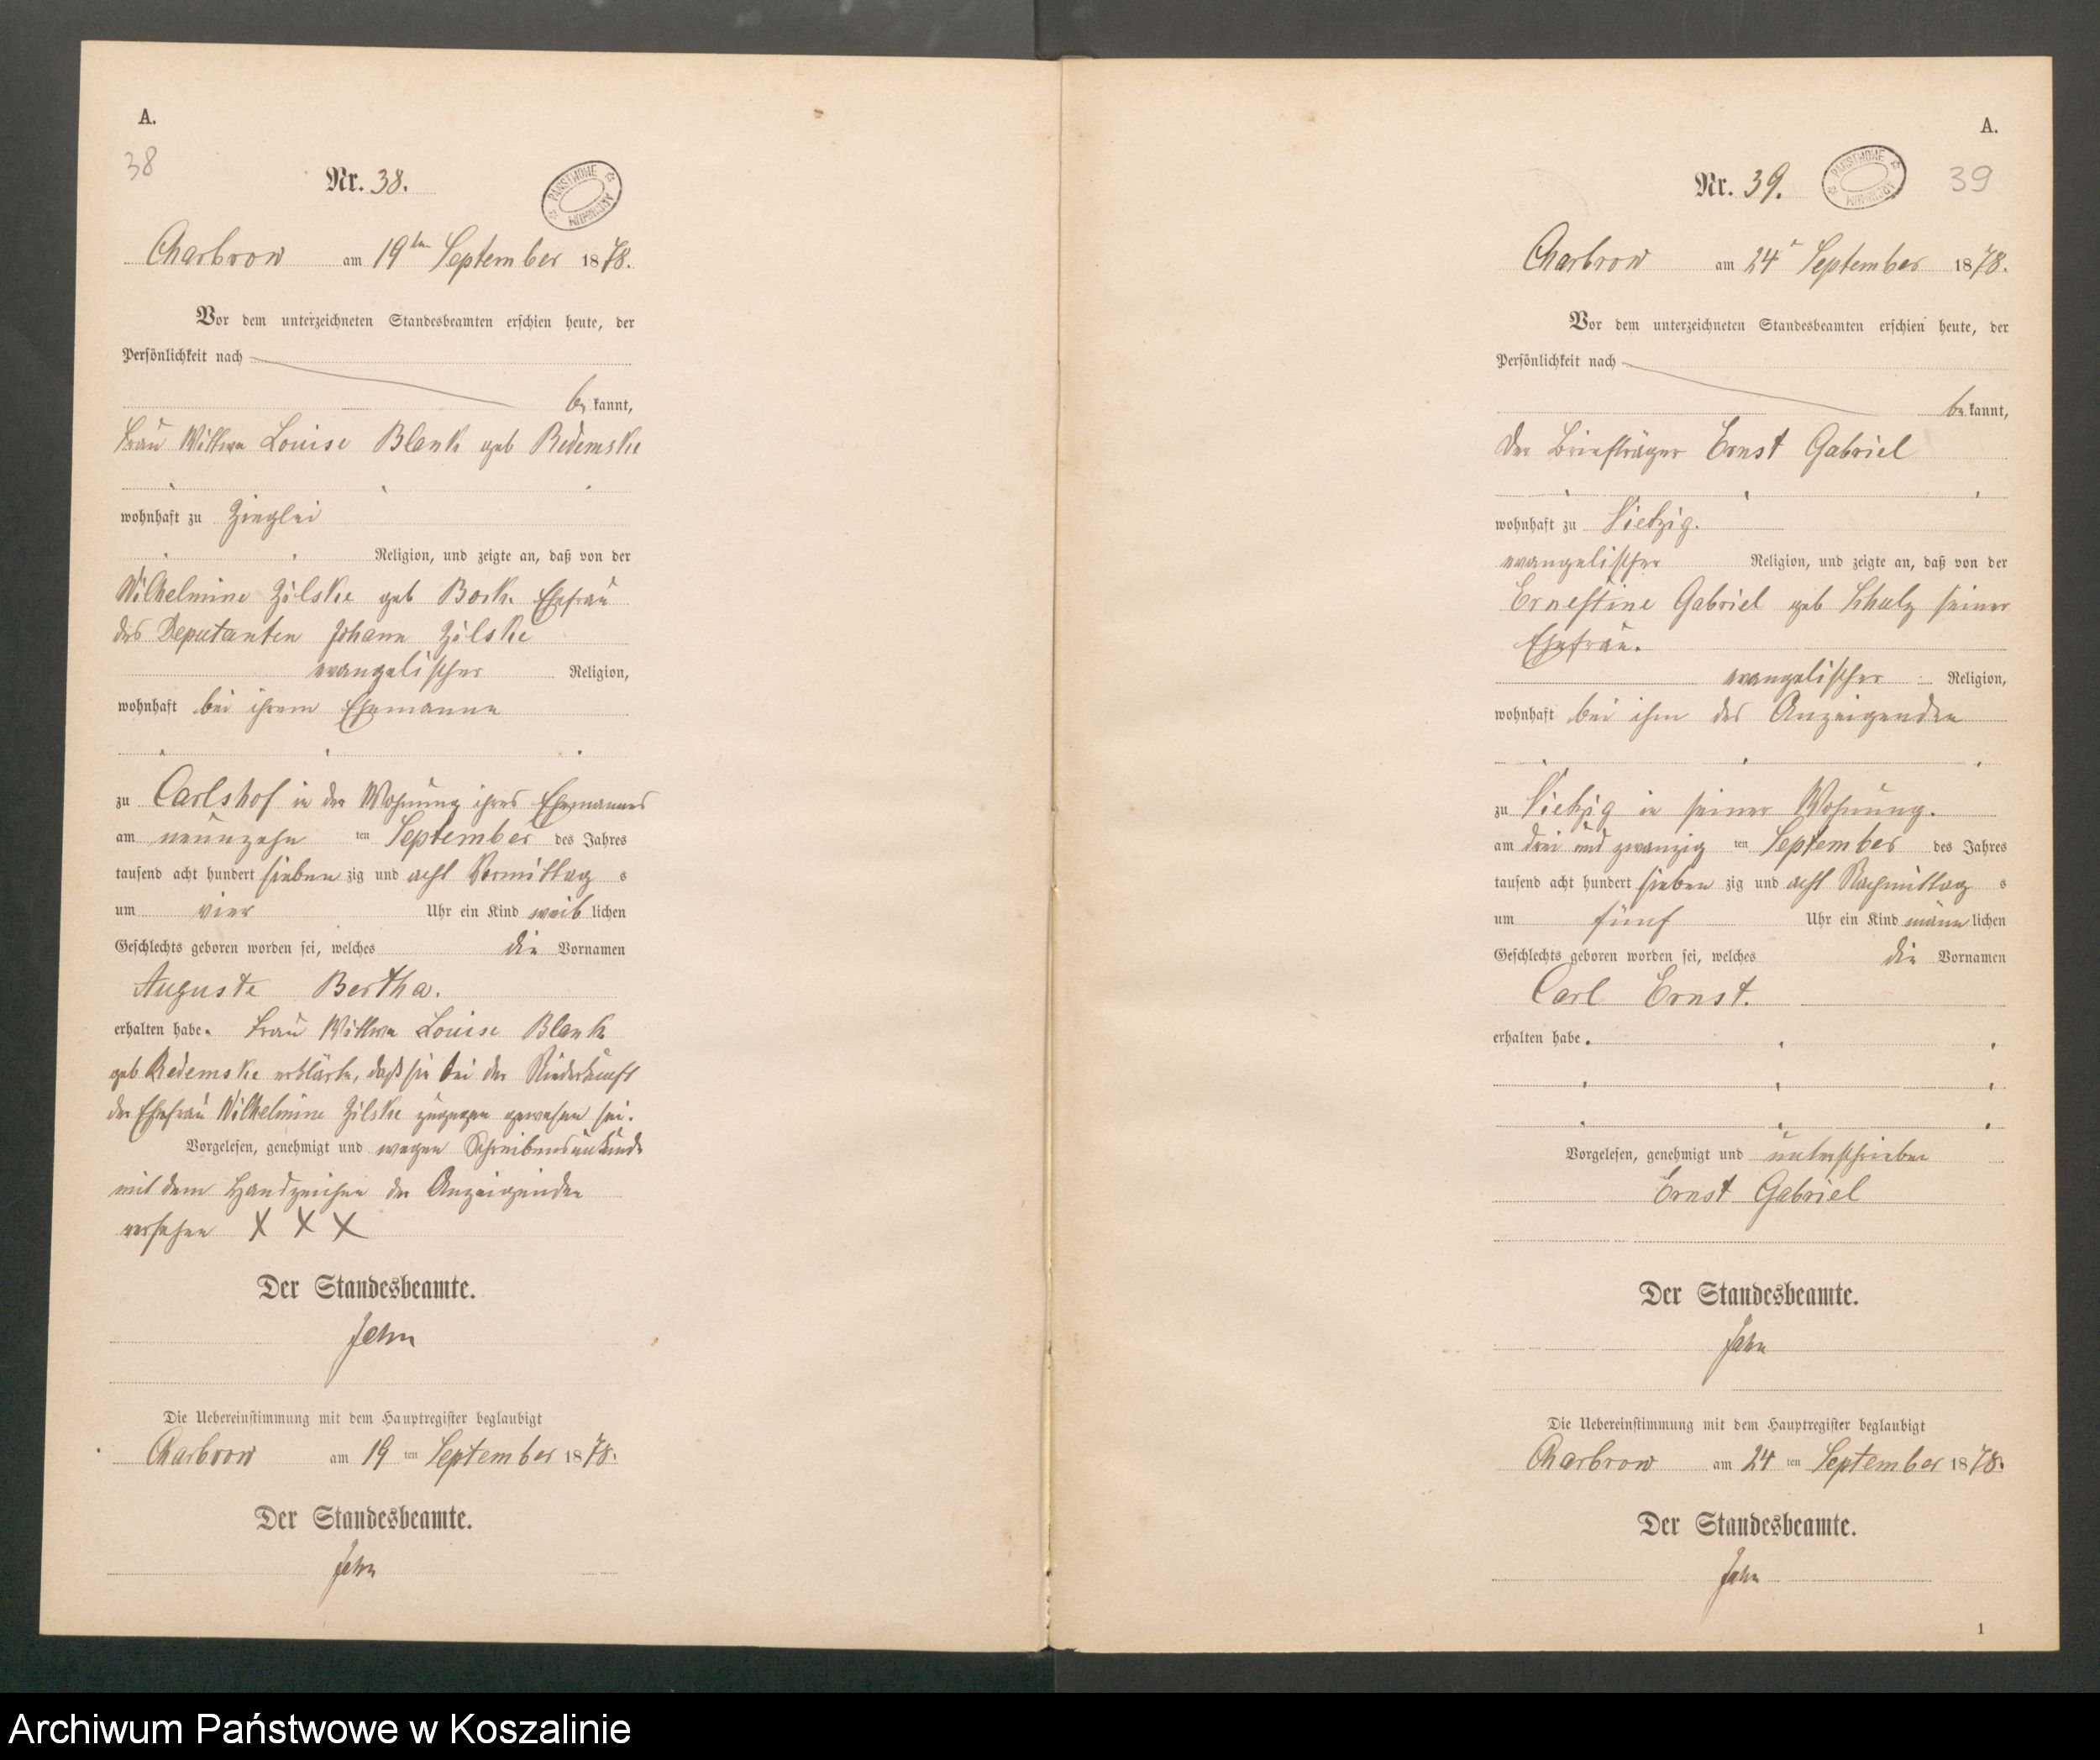 A.
38
Nr. 38.
PAŃSTWOWE ARCHIWUM
Charbrow am 19ten September 1878.
Vor dem unterzeichneten Standesbeamten erschien heute, der
Persönlichkeit nach
be kannt,
Frau Wittwe Louise Blank geb Redemske
wohnhaft zu Zieglei
Religion, und zeigte an, daß von der
Wilhelmine Zilske geb Bork. Ehefrau
des Deputanten Johann Zilske
evangelischer Religion,
wohnhaft bei ihrem Ehemanne
zu Carlshof in der Wohnung ihres Ehemannes
am neunzehn ten September des Jahres
tausend acht hundert sieben zig und acht Vormittag s
um vier Uhr ein Kind weib lichen
Geschlechts geboren worden sei, welches die Vornamen
Auguste Bertha.
erhalten habe. Frau Wittwe Louise Blank
geb Redemske erklärte, daß sie bei der Niederkunft
der Ehefrau Wilhelmine Zilske zugegen gewesen sei.
Vorgelesen, genehmigt und wegen Schreibensunkunde
mit dem Handzeichen der Anzeigenden
versehen X X X
Der Standesbeamte.
Jahn
Die Uebereinstimmung mit dem Hauptregister beglaubigt
Charbrow am 19 ten September 1878.
Der Standesbeamte.
Jahn
A.
Nr. 39.
PAŃSTWOWE ARCHIWUM
39
Charbrow am 24 September 1878.
Vor dem unterzeichneten Standesbeamten erschien heute, der
Persönlichkeit nach
be kannt,
Der Briefträger Ernst Gabriel
wohnhaft zu Vietzig.
evangelischer Religion, und zeigte an, daß von der
Ernestine Gabriel geb Schulz seiner
Ehefrau.
evangelischer Religion,
wohnhaft bei ihm des Anzeigenden
zu Vietzig in seiner Wohnung.
am drei und zwanzig ten September des Jahres
tausend acht hundert sieben zig und acht Nachmittag s
um fünf Uhr ein Kind männ lichen
Geschlechts geboren worden sei, welches die Vornamen
Carl Ernst.
erhalten habe.
Vorgelesen, genehmigt und unterschrieben
Ernst Gabriel
Der Standesbeamte.
Jahn
Die Uebereinstimmung mit dem Hauptregister beglaubigt
Charbrow am 24 ten September 1878.
Der Standesbeamte.
Jahn
1
Archiwum Państwowe w Koszalinie